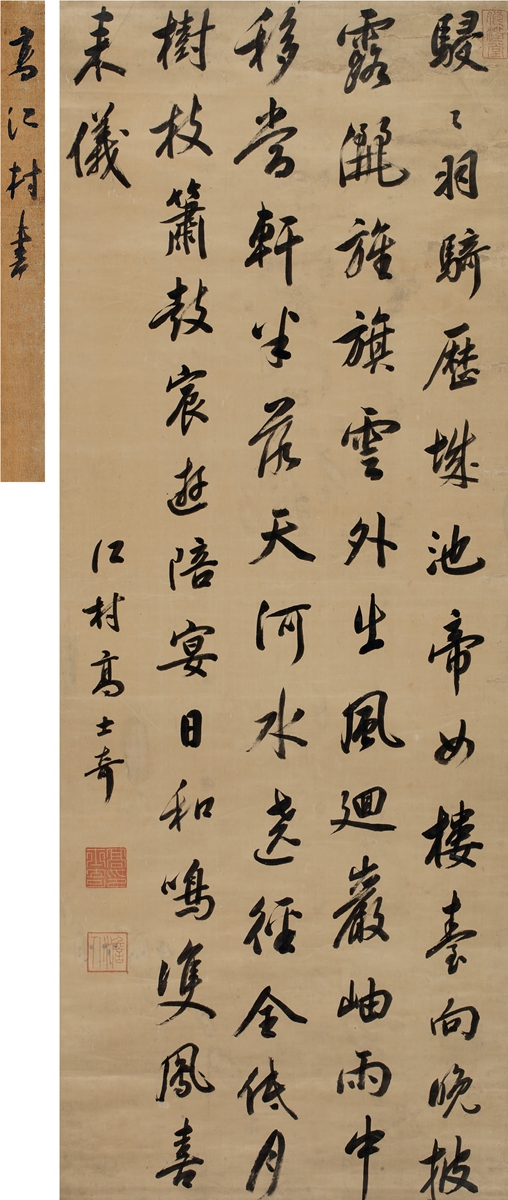 駸〻羽騎歷城池帝女樓臺向晚披
露灑旌旗雲外出風廻巖岫雨中
移當軒半落天河水遶徑全低月
樹枝簫鼓宸遊陪宴日和鳴雙鳳喜
来儀
江村高士奇
高江村書